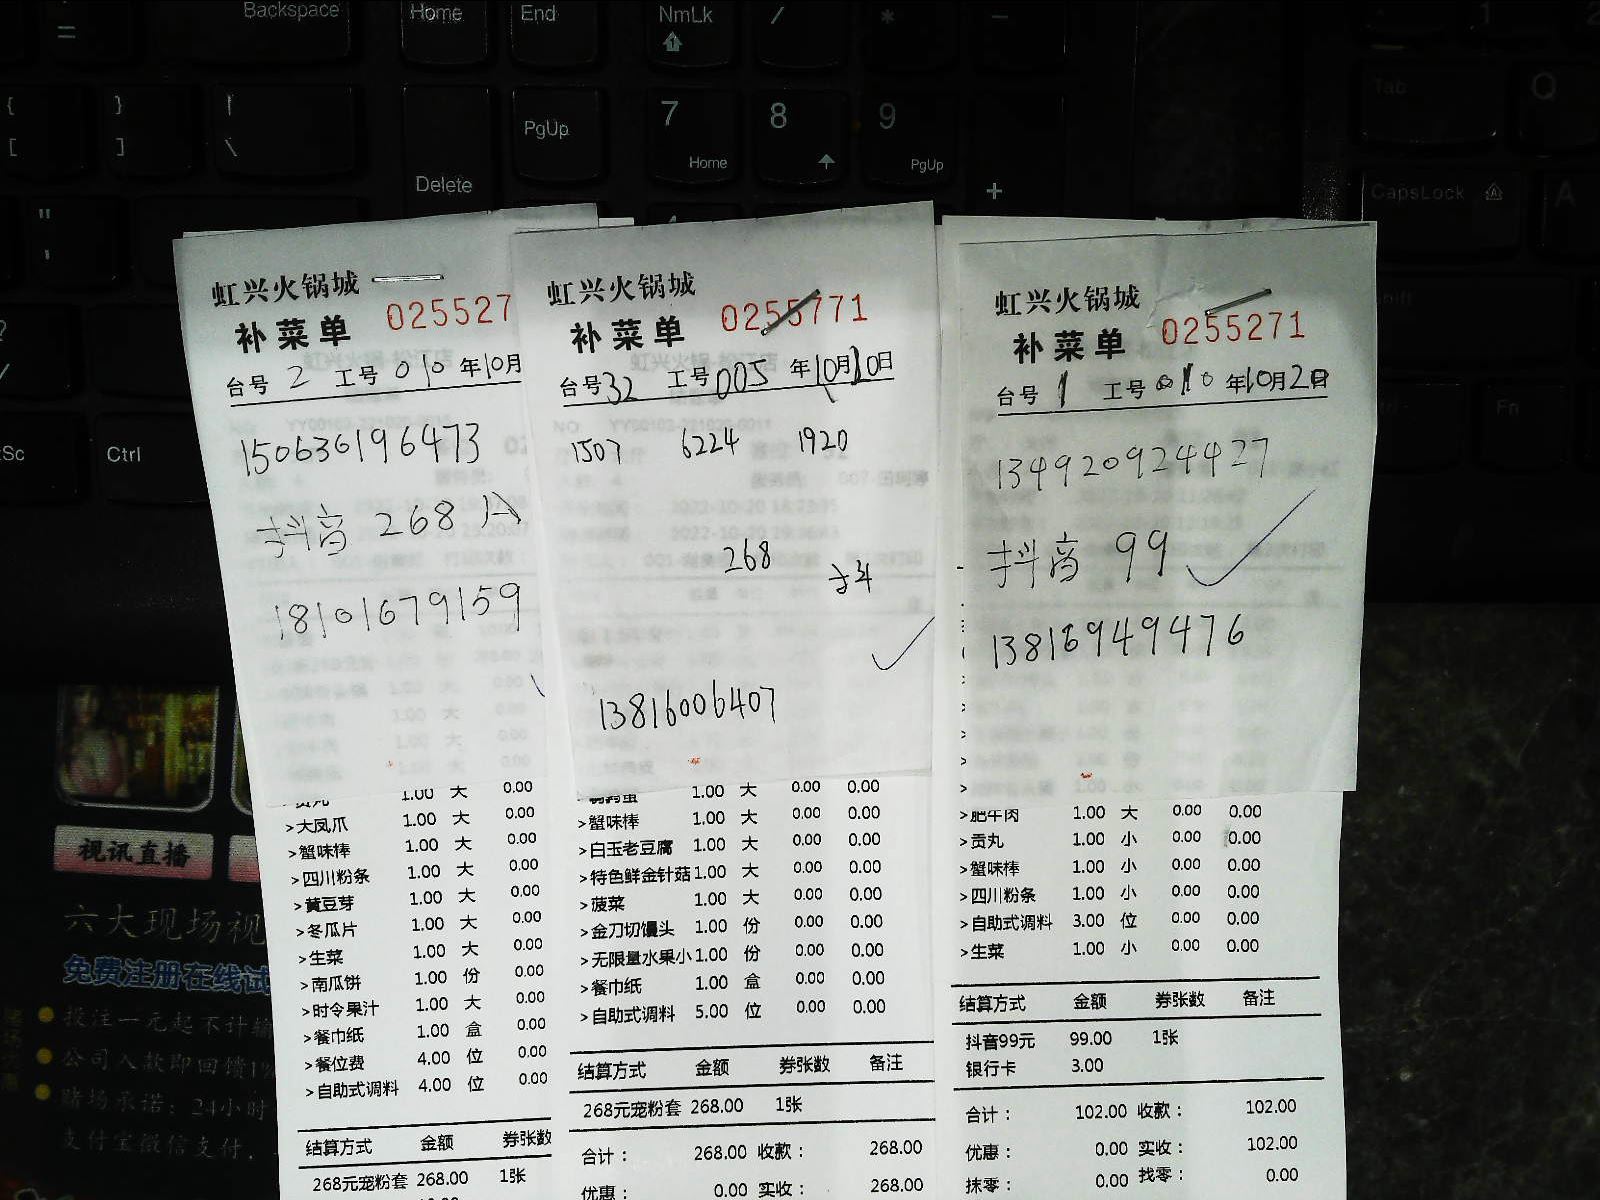 Backspace
Home
End
NmLk
/
*
-
=
{
[
}
]
|
\
PgUp
Delete
7
Home
8
9
PgUp
+
Tab
Q
CapsLock
A
"
'
Ctrl
Fn
虹兴火锅城
补菜单
025527
台号 2 工号 010 年10月
150636196473
抖音 268
18101679159
1.00 大 0.00
>大凤爪 1.00 大 0.00
>蟹味棒 1.00 大 0.00
>四川粉条 1.00 大 0.00
>黄豆芽 1.00 大 0.00
>冬瓜片 1.00 大 0.00
>生菜 1.00 大 0.00
>南瓜饼 1.00 份 0.00
>时令果汁 1.00 大 0.00
>餐巾纸 1.00 盒 0.00
>餐位费 4.00 位 0.00
>自助式调料 4.00 位 0.00
结算方式 金额 券张数
268元宠粉套 268.00 1张
虹兴火锅城
补菜单
0255771
台号32 工号005 年10月10日
1507 6224 1920
268 抖
13816006407
1.00 大 0.00 0.00
>蟹味棒 1.00 大 0.00 0.00
>白玉老豆腐 1.00 大 0.00 0.00
>特色鲜金针菇1.00 大 0.00 0.00
>菠菜 1.00 大 0.00 0.00
>金刀切馒头 1.00 份 0.00 0.00
>无限量水果小1.00 份 0.00 0.00
>餐巾纸 1.00 盒 0.00 0.00
>自助式调料 5.00 位 0.00 0.00
结算方式 金额 券张数 备注
268元宠粉套 268.00 1张
合计： 268.00 收款： 268.00
优惠： 0.00 实收： 268.00
虹兴火锅城
补菜单
0255271
台号 1 工号 010 年10月20日
134920924427
抖音 99
13816949476
>肥牛肉 1.00 大 0.00 0.00
>贡丸 1.00 小 0.00 0.00
>蟹味棒 1.00 小 0.00 0.00
>四川粉条 1.00 小 0.00 0.00
>自助式调料 3.00 位 0.00 0.00
>生菜 1.00 小 0.00 0.00
结算方式 金额 券张数 备注
抖音99元 99.00 1张
银行卡 3.00
合计： 102.00 收款： 102.00
优惠： 0.00 实收： 102.00
抹零： 0.00 找零： 0.00
视讯直播
六大现场视
免费注册在线试
投注一元起不计输
公司入款即回馈1%
赌场承诺：24小时
支付宝微信支付，